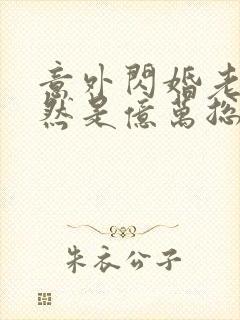 意外閃婚老
然是億萬總
朱衣公子